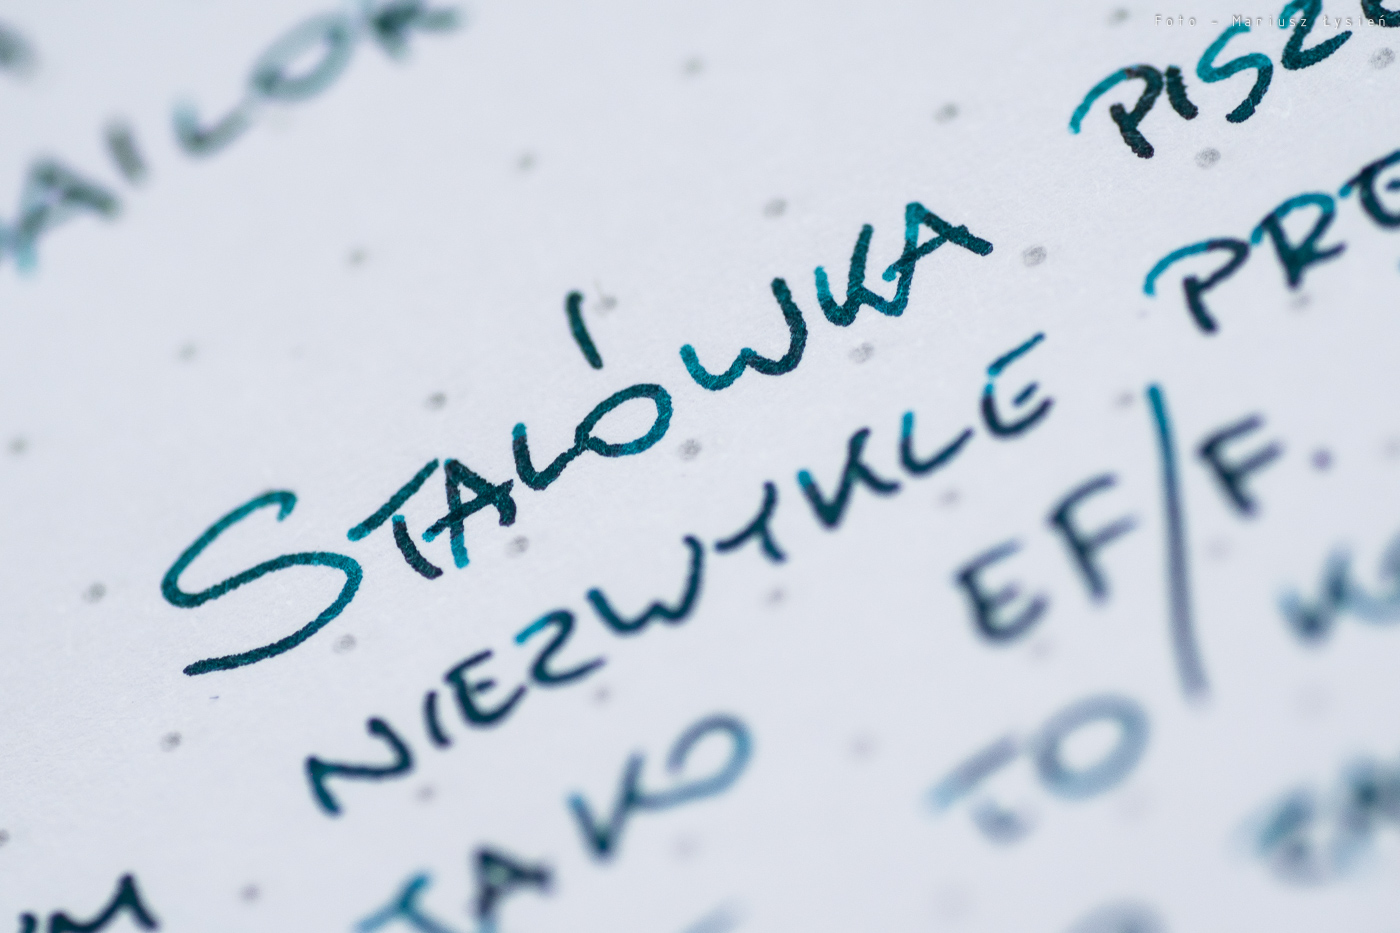 Foto - Mariusz Łysień
STALÓWKA PISZ
NIEZWYKLE PRE
TAKO EF/F.
TO